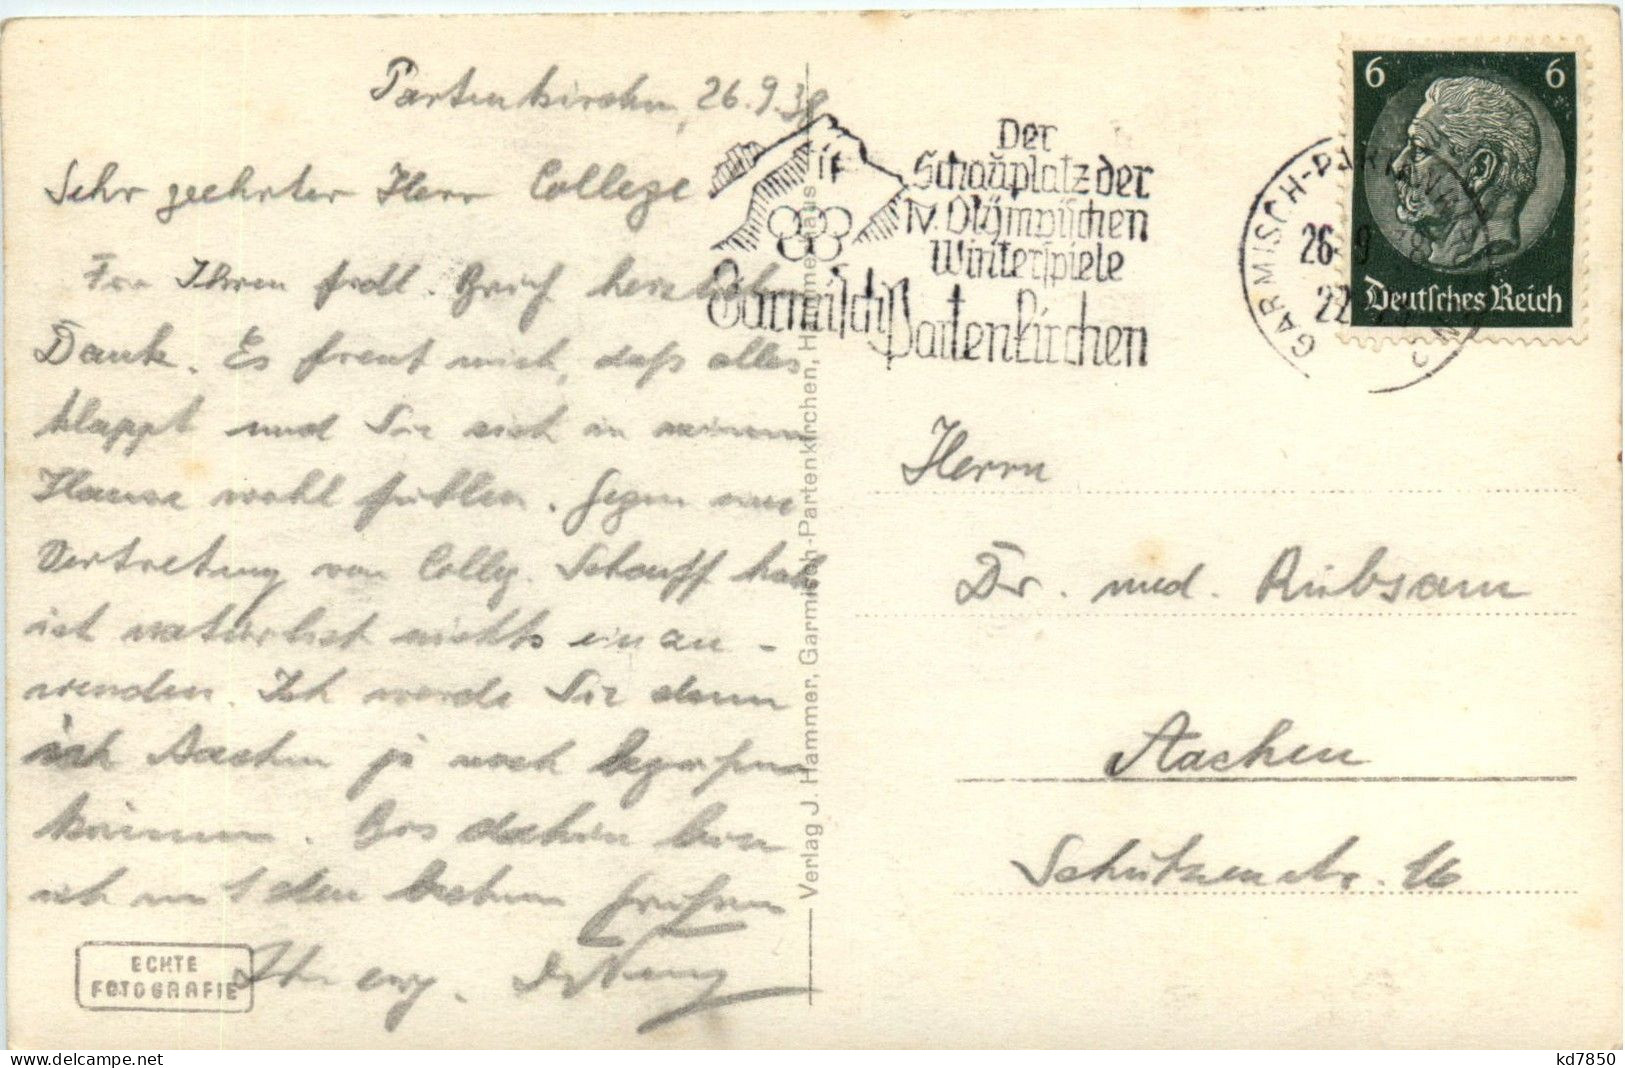 Partenkirchen, 26.9.38
Sehr geehrter Herr College
Für Ihren frdl. Brief herzlichen
Dank. Es freut mich, daß alles
klappt und Sie sich in meinem
Hause wohl fühlen. Gegen eine
Vertretung von Colleg. Schauff hab
ich natürlich nichts einzu-
wenden. Ich werde Sie dann
in Aachen ja noch begrüßen
können. Bis dahin bin
ich mit den besten Grüßen
Ihr erg.
ECHTE
FOTOGRAFIE
Verlag J. Hammer, Garmisch-Partenkirchen, Hammerhaus
Der
Schauplatz der
IV. Olympischen
Winterspiele
Garmisch Partenkirchen
GARMISCH-PARTENKIRCHEN
26.9
22
6 6
Deutsches Reich
Herrn
Dr. med. Rübsam
Aachen
Schützenstr. 16
kd7850